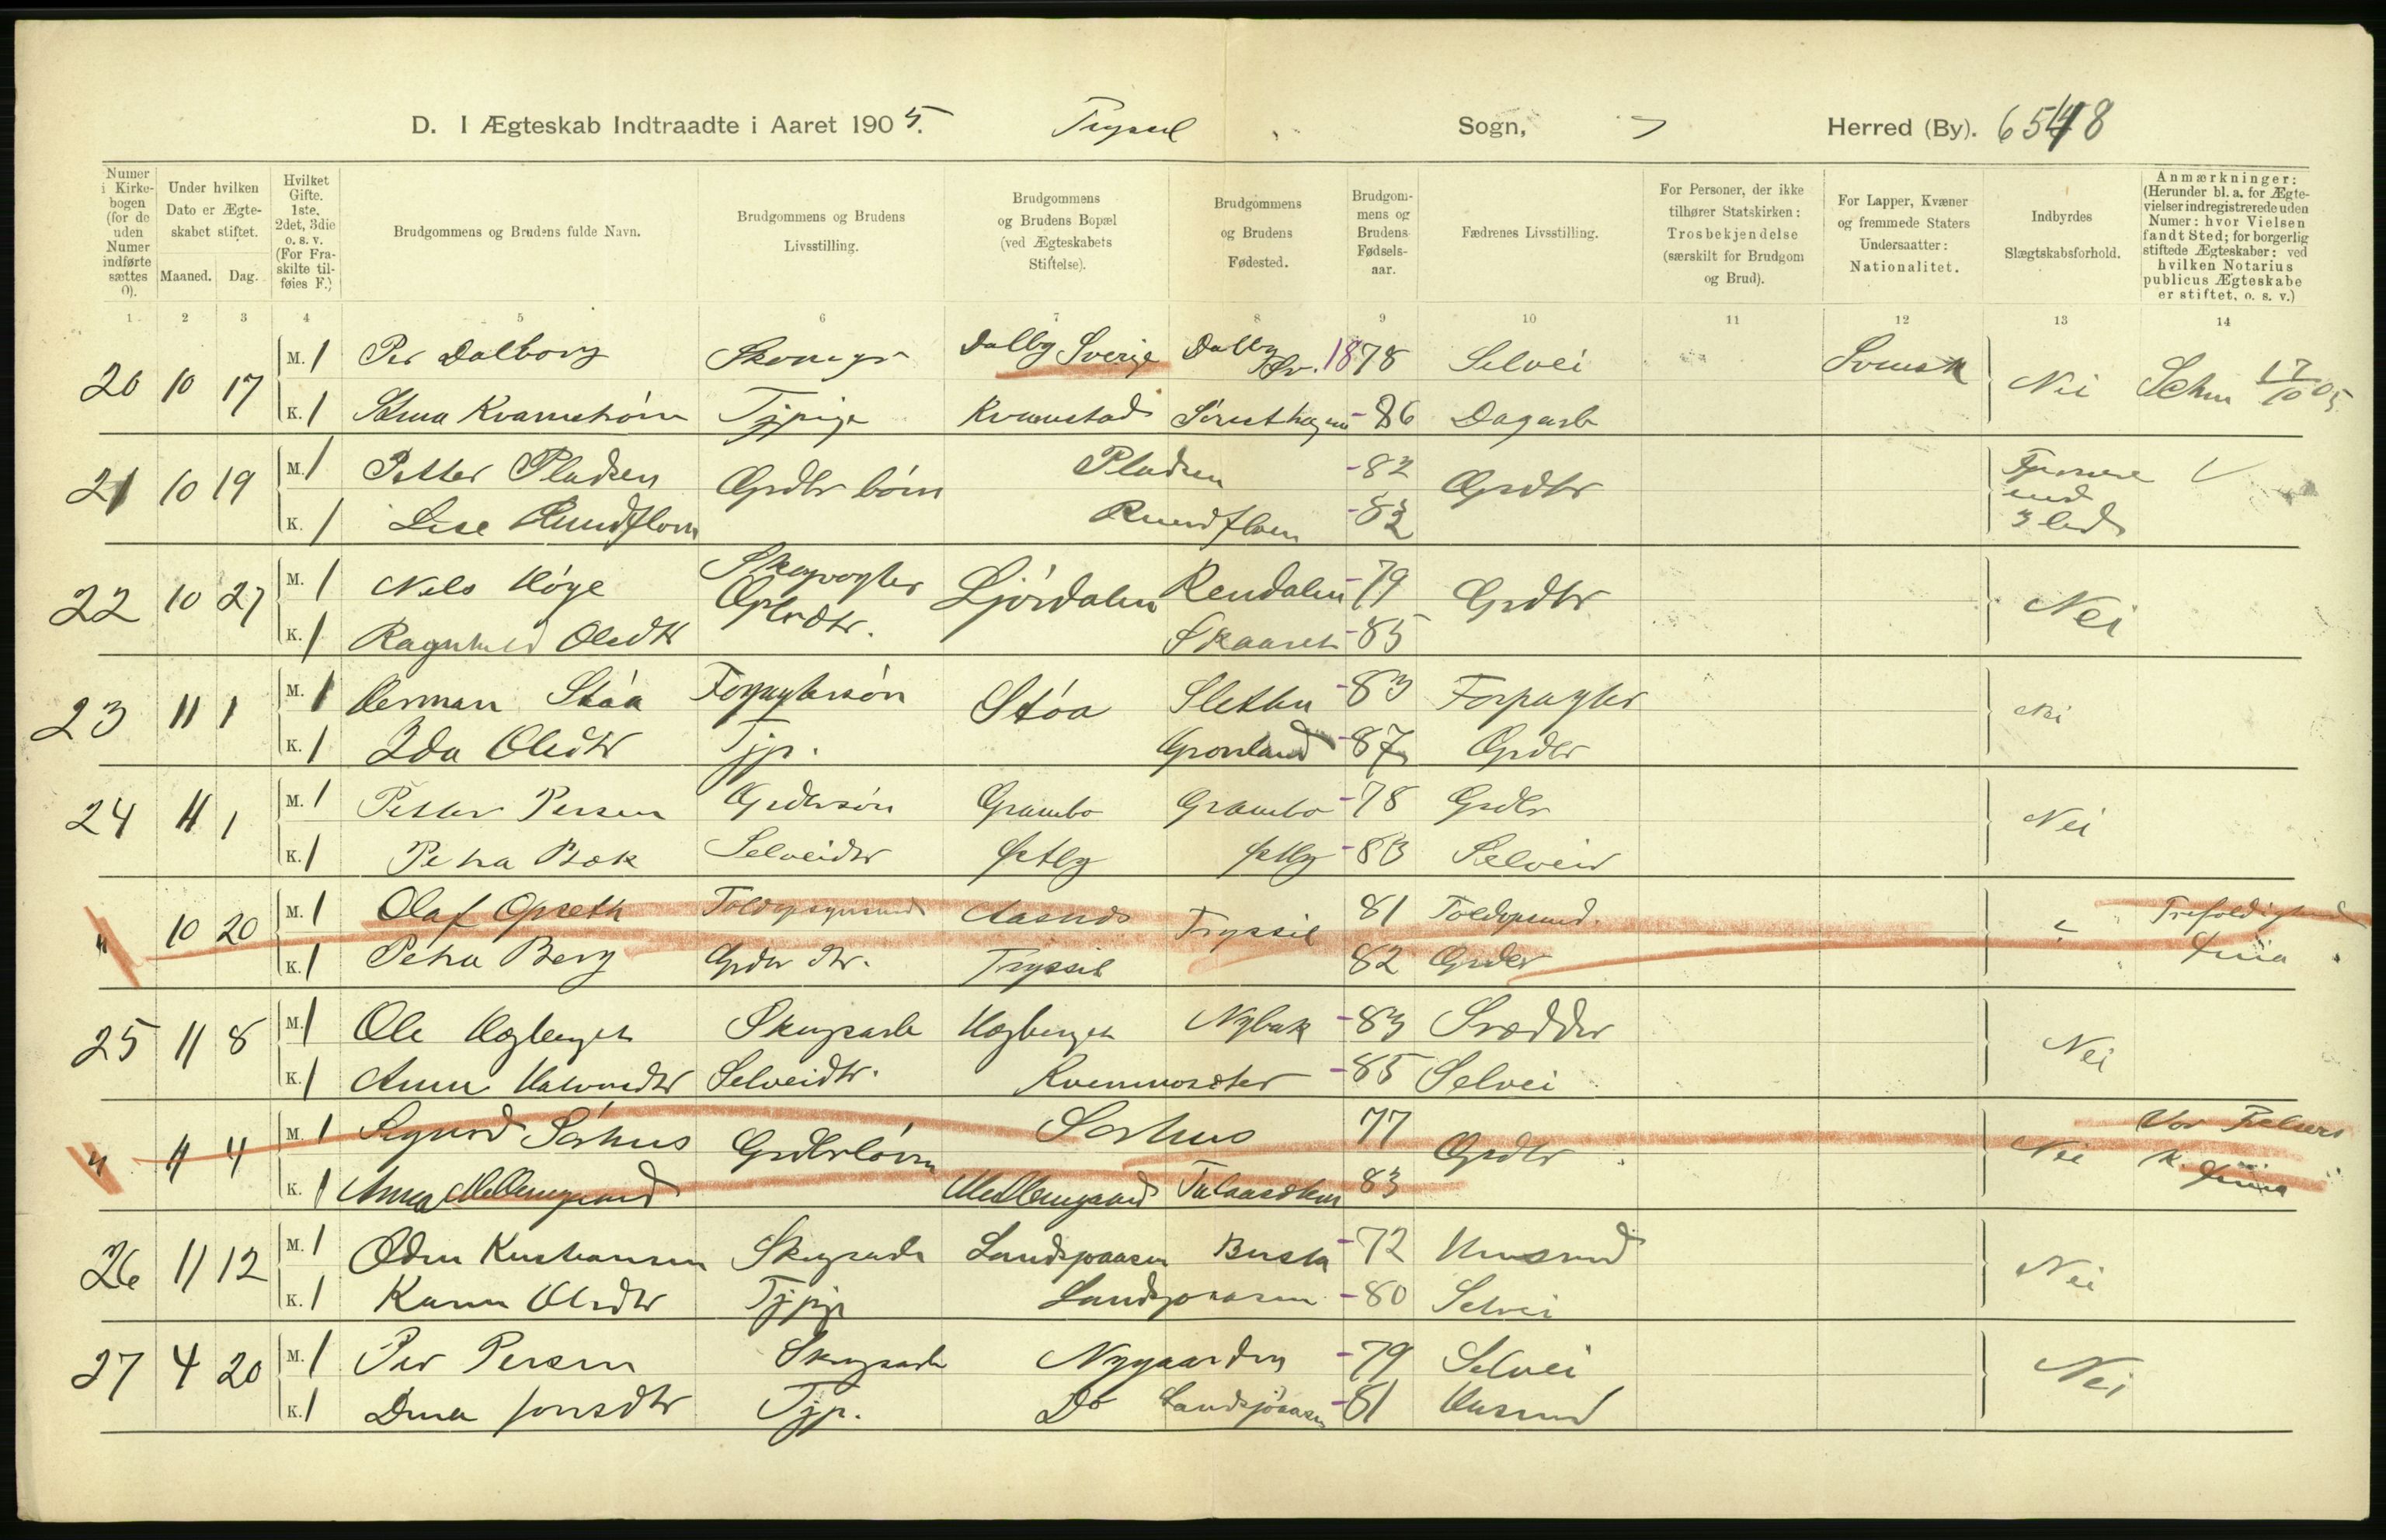 D. I Ægteskab Indtraadte i Aaret 1905. Trysil Sogn, Herred (By). 6548
Numer i Kirke-bogen (for de uden Numer indførte sættes 0).
Under hvilken Dato er Ægte-skabet stiftet.
Maaned. Dag.
Hvilket Gifte. 1ste, 2det, 3die o. s. v. (For Fra-skilte til-føies F.)
Brudgommens og Brudens fulde Navn.
Brudgommens og Brudens Livsstilling.
Brudgommens og Brudens Bopæl (ved Ægteskabets Stiftelse).
Brudgommens og Brudens Fødested.
Brudgom-mens og Brudens Fødsels-aar.
Fædrenes Livsstilling.
For Personer, der ikke tilhører Statskirken: Trosbekjendelse (særskilt for Brudgom og Brud).
For Lapper, Kvæner og fremmede Staters Undersaatter: Nationalitet.
Indbyrdes Slægtskabsforhold.
Anmærkninger: (Herunder bl. a. for Ægte-vielser indregistrerede uden Numer: hvor Vielsen fandt Sted; for borgerlig stiftede Ægteskaber: ved hvilken Notarius publicus Ægteskabe er stiftet, o. s. v.)
1 2 3 4 5 6 7 8 9 10 11 12 13 14
20 10 17 M. 1 Per Dalborg Dalby Sverige Dalby Sv. 1878 Selvei Svensk Nei 17/10 05
K. 1 Tjpige Kvanstad -86 Dagarb
21 10 19 M. 1 Petter Pladsen Grdbr børn Pladsen -82 Grdbr
K. 1 Lise Rundfloen Rundfloen -82 3 led
22 10 27 M. 1 Nils Høye Skogvogter Ljørdalen Rendalen -79 Grdbr Nei
K. 1 Ragnhild Olsdtr Grbrdtr. Skaaret -85
23 11 1 M. 1 Herman Støa Forpagtersøn Støa Sletten -83 Forpagter Nei
K. 1 Ida Olsdtr Tjp. Grønland -87 Grdbr
24 11 1 M. 1 Petter Persen Grdbrsøn Grambo Grambo -78 Grdbr Nei
K. 1 Petra Bæk Selveidtr Sætby Sætby -83 Selveier
" 10 20 M. 1 Olaf Opseth Toldopsynsmand Aasnes Trysil 81 Toldopsmd. Trefoldighed
K. 1 Petra Berg Grdbr dtr. Trysil 82 Grdbr Kria
25 11 8 M. 1 Ole Høgberget Skogsarb Høgberget Nybak -83 Skrædder Nei
K. 1 Anna Halvorsdtr Selveidtr. Kvernmosæter -85 Selvei
" 11 4 M. 1 Sigurd Sørhus Grdbrbørn Sørhus 77 Grdbr Nei Vor Frelsers
K. 1 Anna Mellemgaard Mellemgaard 83 K. Kria
26 11 12 M. 1 Oden Kristiansen Skogsarb Landsjøaasen -72 Husmd Nei
K. 1 Karen Olsdtr Tjpige Landsjøaasen -80 Selvei
27 4 20 M. 1 Per Persen Skogsarb Nygaarden -79 Selvei Nei
K. 1 Dina Jonsdtr Tjp. Do Landsjøaasen -81 Husmd